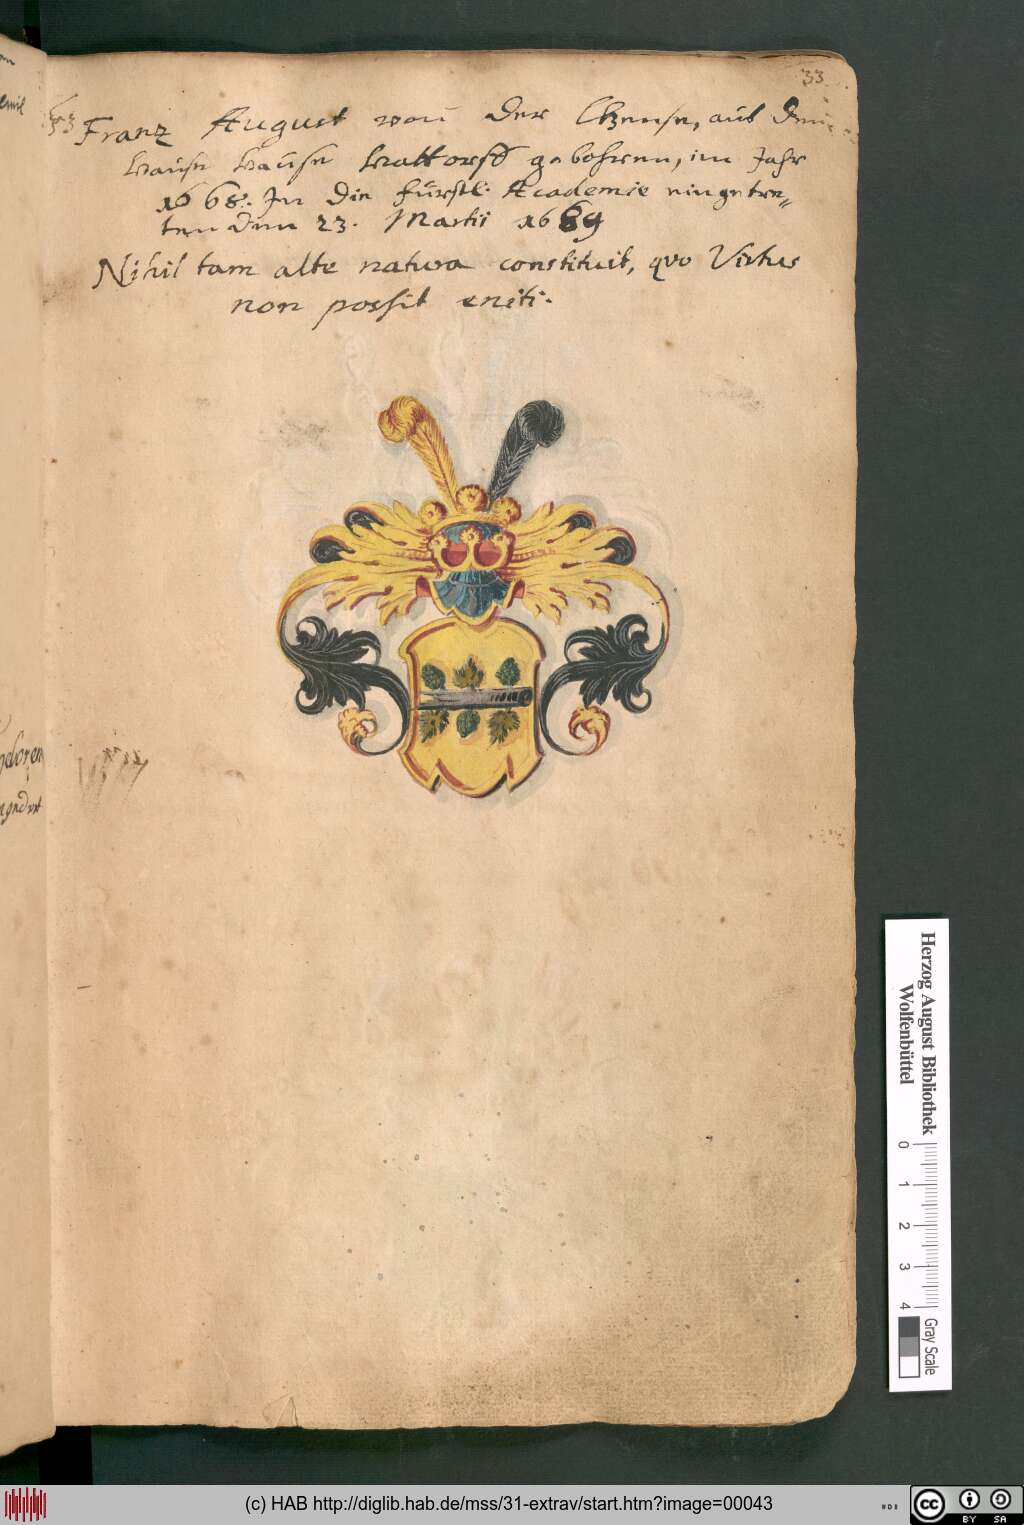 33
53 Franz August von der Chzense, aus dem
Hause Hause Hattorff gebohren, im Jahr
1668. In die fürstl: Academie eingetre=
ten den 23. Martii 1689
Nihil tam alte natura constituit, quo Virtus
non possit eniti.
Herzog August Bibliothek
Wolfenbüttel
0 1 2 3 4
Gray Scale
(c) HAB http://diglib.hab.de/mss/31-extrav/start.htm?image=00043
cc BY SA